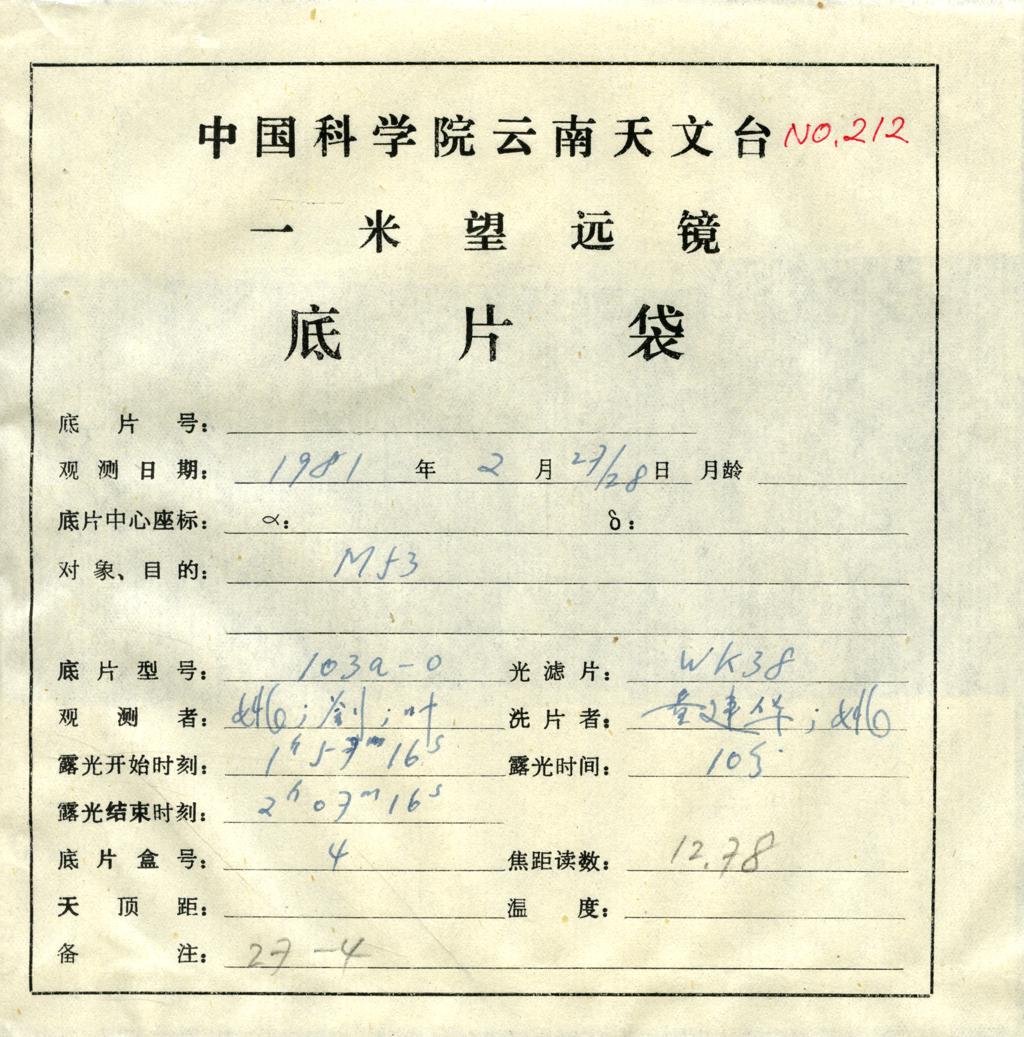 中国科学院云南天文台 NO.212
一米望远镜
底片袋
底片号:
观测日期: 1981 年 2 月 27/28 日 月龄
底片中心座标: α: δ:
对象、目的: M53
底片型号: 103a-O 光滤片: WK38
观测者: ;刘;叶 洗片者:
露光开始时刻: 1h 57m 16s 露光时间: 10
露光结束时刻: 2h 07m 16s
底片盒号: 4 焦距读数: 12.78
天顶距: 温度:
备注: 27-4